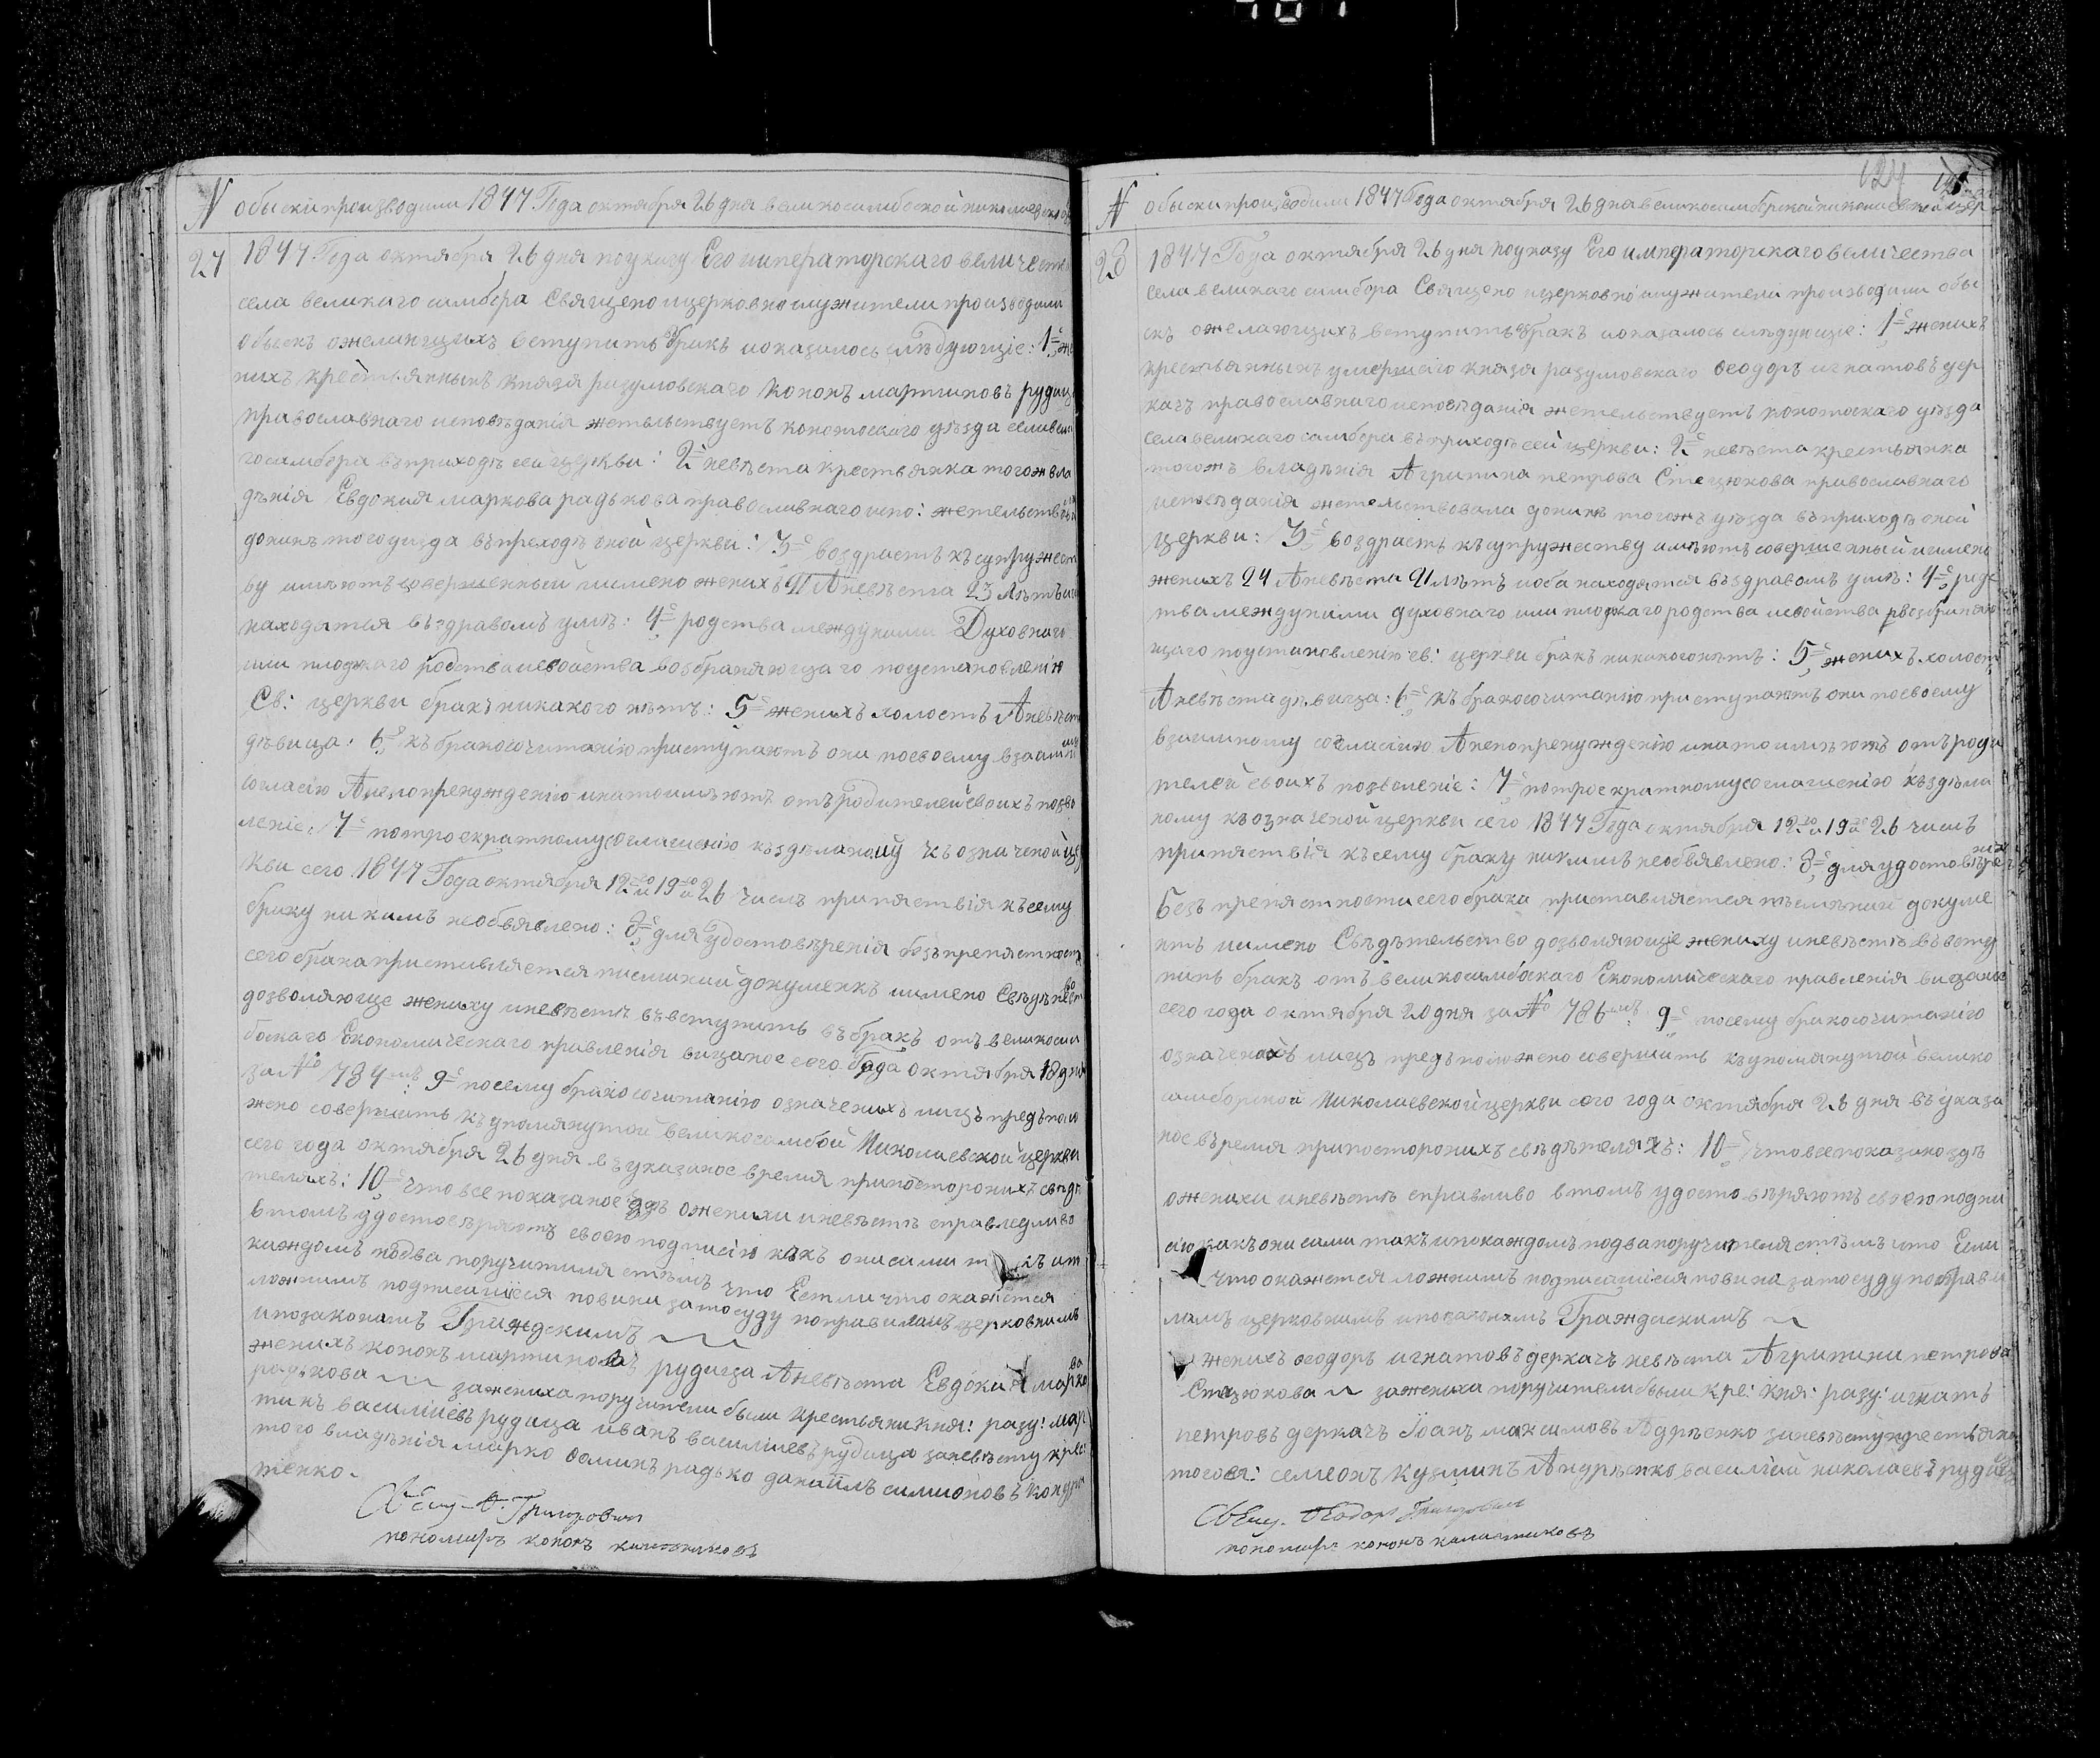 N обыски производили 1847 Года октября 26 дня великосамбоской николаевской
27 1847 Года октября 26 дня поуказу Его императорскаго величества
села великаго самбора Священо ицерковнослужители производили
обыскъ ожелающихъ вступить бракъ иоказалось слѣдующіе: 1е же
нихъ крестьянынъ князя разумовскаго кононъ мартиновъ рудица
православнаго исповѣданія жетельствуетъ конотоского уѣзда села вели
госамбора въприходѣ сей церкви: 2е невѣста крестьянка тогожъ вла
дѣнія Евдокия маркова радькова православнаго испо: жетельствова
донинѣ тогоуизда въпреходѣ оной церкви: 3е воздрасть къ супружест
ву имѣютъ совершенный имено женихъ 21 Аневѣста 23 лѣтъ и оба
находятся въздравомъ умѣ: 4е родства между ними Духовнаго
или плоцкаго родства исвойства возбраняющаго поустановленію
Св: церкви бракъ никакого нѣтъ: 5е женихъ холостъ Аневѣста
дѣвица: 6е къ бракосочитанію приступаютъ они посвоему взаимному
согласію Анепопренуждению инатоимѣютъ отъ родителей своихъ позво
леніе: 7е потроекратному согласиенію къздѣланому къозначеной цер
кви сего 1847 Года октября 12го 19го и 26 числъ припятствія къ сему
браку никимъ необъявлено: 8е для удостовѣренія безъ препятсности
сего брака приставляется писмений докуменкъ имено Свѣдѣтельство
дозволяюще жениху иневѣстѣ въвступить въ бракъ отъ великосам
боскаго Економическаго правленія выданое сего года октября 18 дня
за № 784мъ: 9е посему бракосочитанію означенихъ лицъ предполо
жено совершить къупомянутой великосамбой Николаевской церкви
сего года октября 26 дня въ указаное время припостороних свѣдѣ
теляхъ: 10е что все показаное здѣ ожених и иневѣстѣ справедливо
втомъ удостовѣряютъ своею подписію какъ они сами такъ ип
каждомъ подва поручителя стѣмъ что Естли что окажется
ложнимъ подписавшіеся повини затосуду поправиламъ церковнимъ
ипозаконамъ Гражденскимъ
женихъ кононъ мартиновъ рудица Аневѣста Евдокия маркова
радькова зажениха поручители были крестьяни Кня: разу: мар
тинъ василіевъ рудица иванъ василіевъ рудица заневѣсту крес:
того владѣнія марко ѳоминъ радько даніилъ симионовъ кондра
тенко.
Свящ. Ѳ. Григоровичъ
пономаръ кононъ калашниковъ
124
N обыски производили 1847 Года октября 26 дна великосамборской николаевской цер
28 1847 Года октября 26 дня поуказу Его императорскаго величества
села великаго самбора Священо ицерковно служители производили обы
скъ ожелающихъ вступить въ бракъ иоказалось слѣдующіе: 1е женихъ
крестьянынъ умершего князя разумовского Ѳеодоръ игнатовъ дер
качъ православнаго исповѣданія жетельствуетъ конотоскаго уѣзда
села великаго самбора въприходѣ сей церкви: 2е невѣста крестьянка
тогожъ владѣнія Агрипина петрова Стецюкова православнаго
исповѣданія жетельствовала донинѣ тогожъ уѣзда въприходѣ оной
церкви: 3е воздрасть къ супружеству имѣютъ совершенный имено
женихъ 24 Аневѣста 21 лѣтъ иоба находятся въздравомъ умѣ: 4е родс
тва между ними духовнаго или плоцкаго родства исвойства возбраняю
щаго поустановленію св: церкви бракъ никакого нѣтъ: 5е женихъ холостъ
Аневѣста дѣвица: 6е къ бракосочитанію приступаютъ они посвоему
взаимному согласію Анепопренужденію инатоимѣютъ отъ роди
телей своихъ позволеніе: 7е потроекратному согласиенію къздѣла
ному къозначеной церкви сего 1847 Года октября 12го и 19го и 26 числъ
припятствія къ сему браку никимъ необъявлено: 8е для удостовѣрения
безъ препятсности сего брака приставляется писмений докуме
нтъ имено Свѣдѣтельство дозволяюще жениху иневѣстѣ въвсту
пить бракъ отъ великосамбоскаго Економическаго правленія выданое
сего года октября 20 дня за № 786мъ: 9е посему бракосочитаніго
означеныхъ лицъ предположено совершить къупомянутой велико
самборской Николаевской церкви сего года октября 26 дня въ указа
ное время припосторонихъ свѣдѣтеляхъ: 10е что все показано здѣ
ожених и иневѣстѣ справливо втомъ удостовѣряютъ своею подпи
сію какъ они сами такъ ипокаждомъ подва поручителя стѣмъ что Если
что окажется ложнимъ подписавшіеся повина затосуду поправи
ламъ церковнимъ ипозаконамъ Гражданскимъ
женихъ ѳеодоръ игнатовъ деркачъ невѣста Агрипини петрова
Стецюкова зажениха поручители были кре: кня: разу: игнатъ
петровъ деркачъ Іоанъ максимовъ Адрѣенко заневѣсту крестьяни
тогова: семеонъ кузминъ Андрѣенко василий николаевъ рудица
Свящ. Ѳеодоръ Григоровичъ
пономаръ кононъ калашниковъ